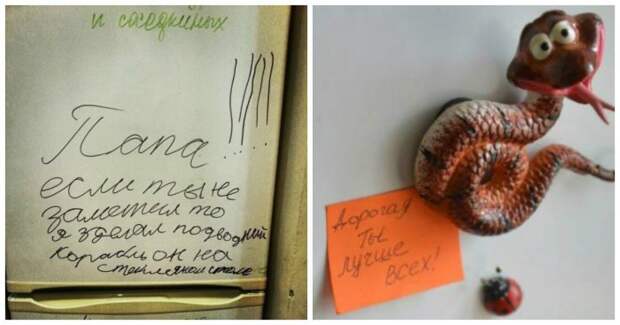 и соседкиных
Папа!!!!
если ты не
заметил то
я зделал подводний
корабль он на
стеклянном столе
Дорогая
ты
лучше
всех!